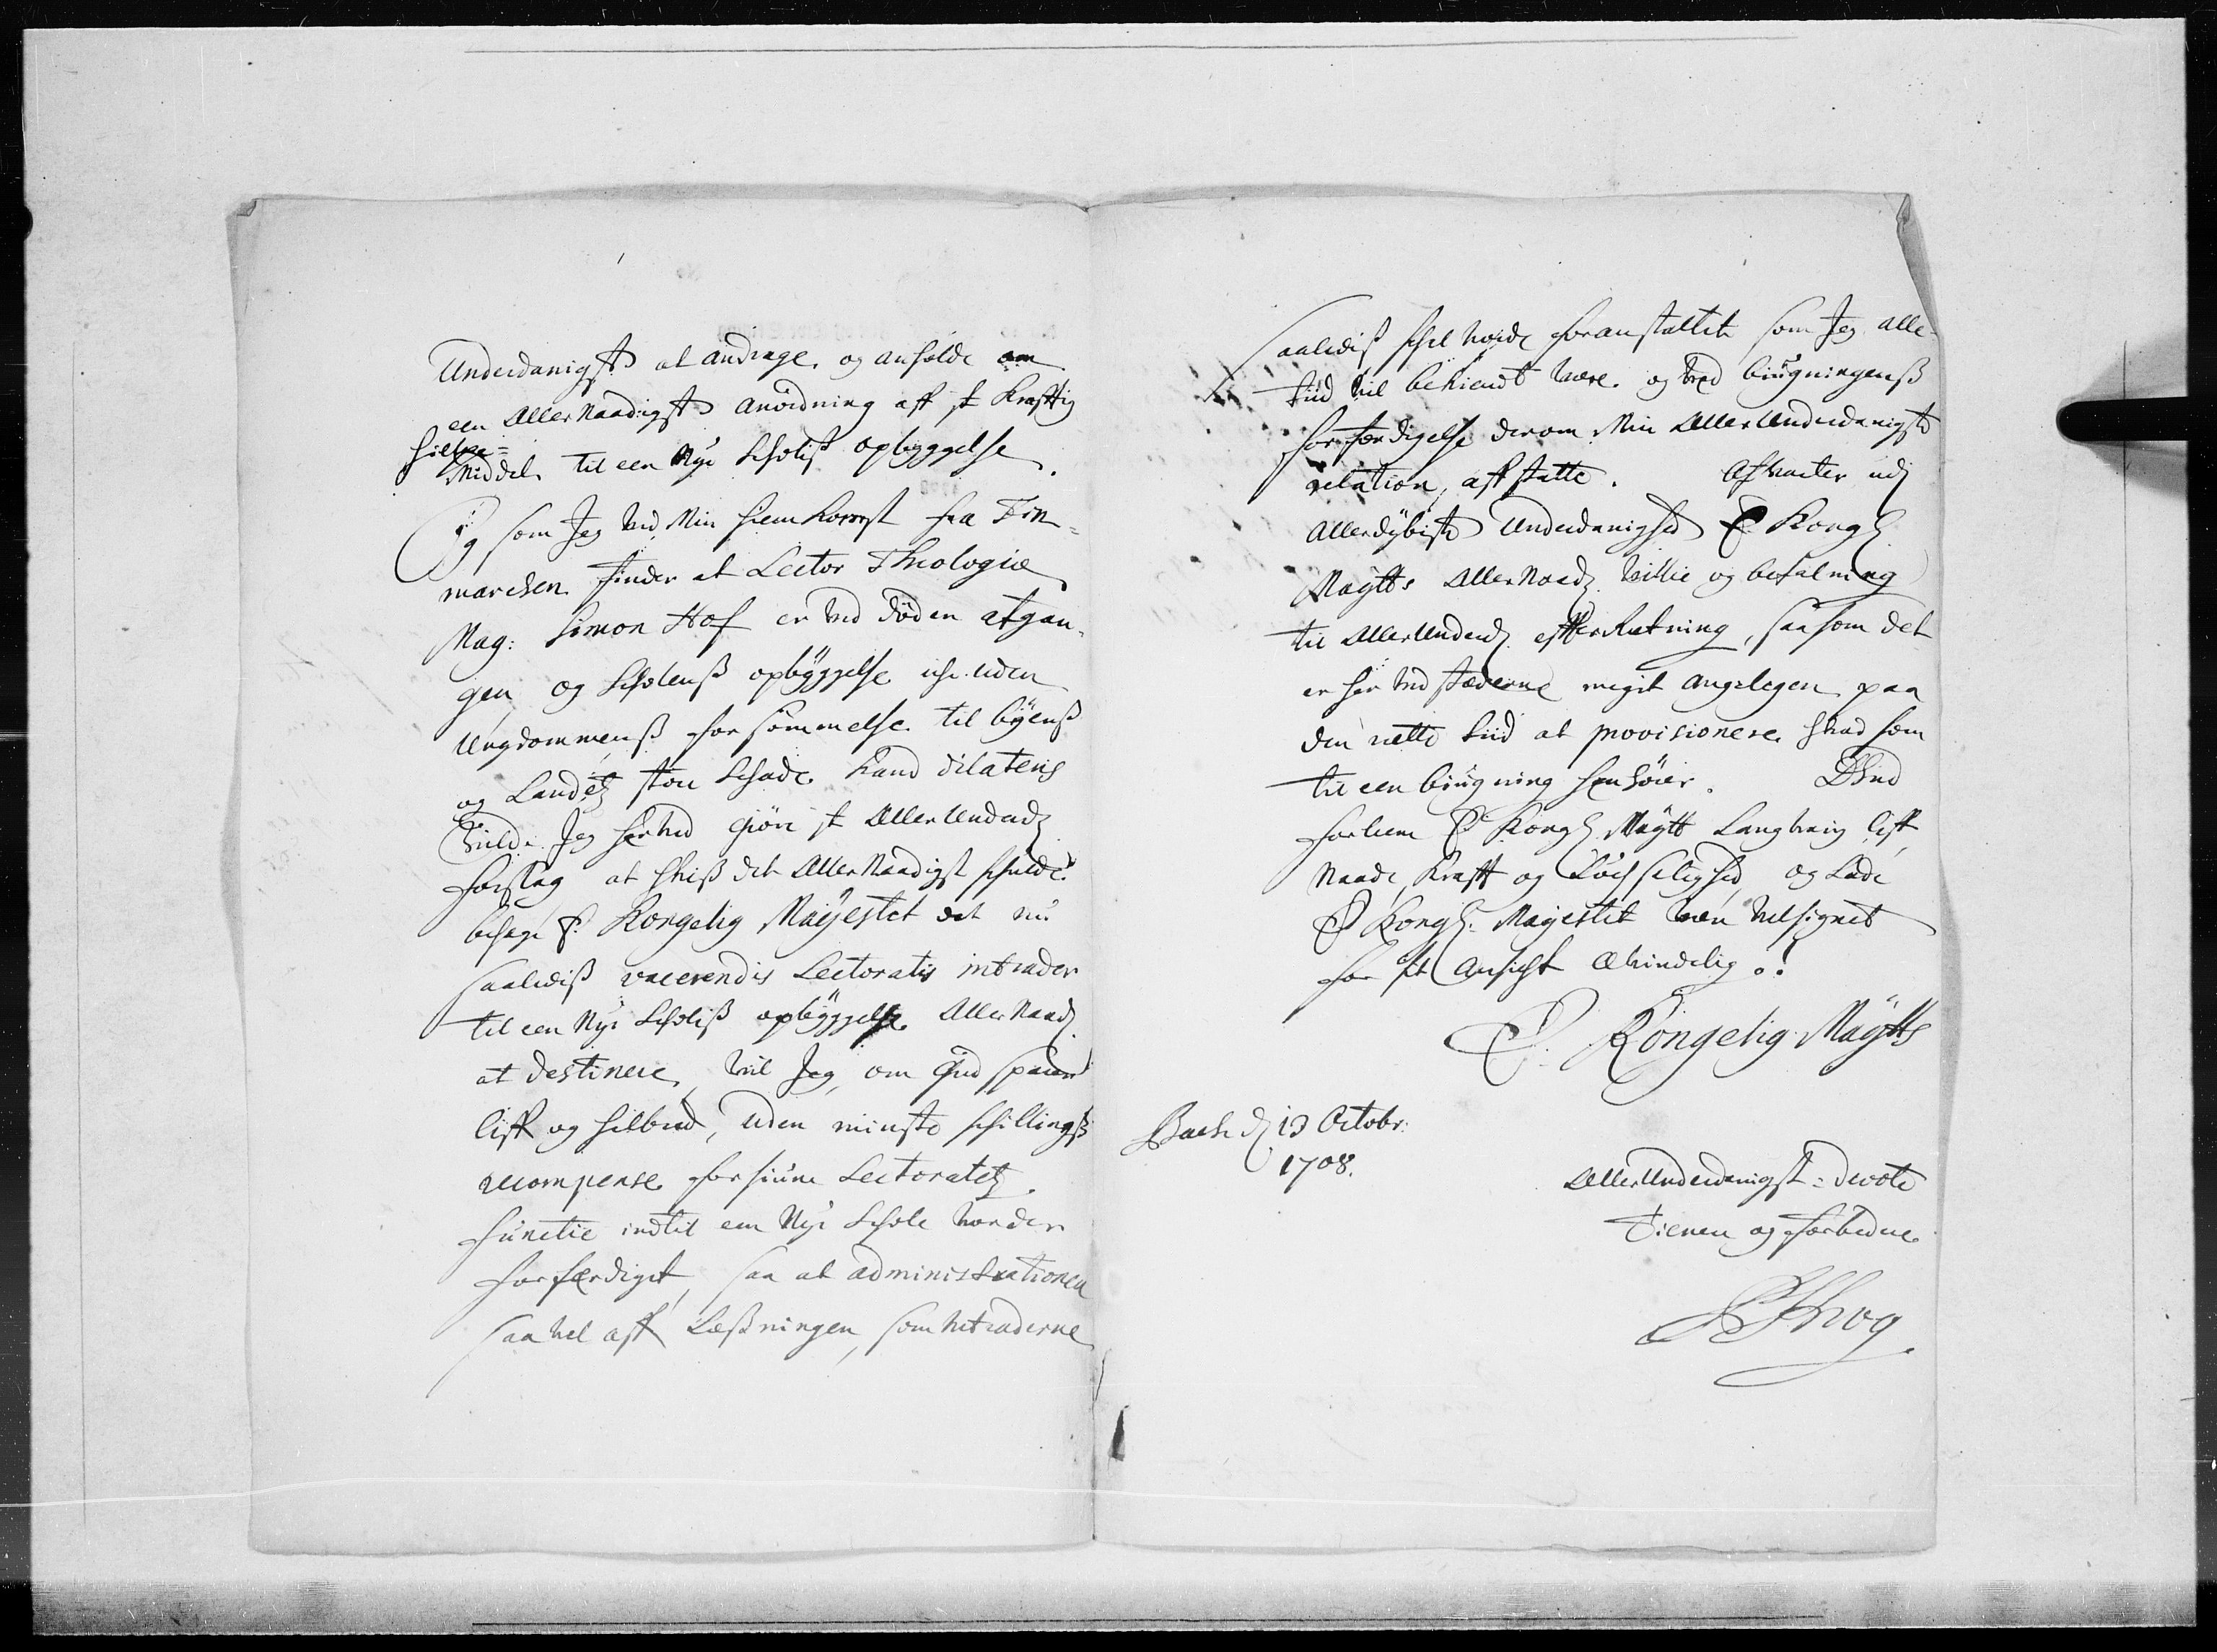 Underdanigst at andrage, og anholde om
een AllerNaadigst anordning aff it Krafftig
hielpe=
Middel til een Nye Scholiß opbyggelse.
Og som Jeg ved Min hiemkomst fra Fin=
marchen finder at Lector Theologiæ
Mag: Simon Hof er ved døden afgan=
gen, og Scholenß opbyggelse ike uden
Ungdommenß forsømmelse til byenß
og Landetz stoer Schade kand dilateris
Vilde Jeg herved giøre it AllerUnderd
forslag at hviß det AllerNaadigst schulde
behage E: Kongelig Mayestet det nu
saalediß vacerendis Lectoratis intrader
til een Nye Scholiß opbyggelse AllerNaad
at destinere, vil Jeg, om Gud sparer
liff og helbred, uden minste schillingß
recompense forsiune Lectoratetz
functie indtil een Nye Schole vorder
forferdiget, saa at administrationen
saa vel aff Læßningen, som intraderne
saalediß schal vorde foranstaltet som Jeg alle=
tiid vil bekiendt være. og ved biugningenß
forferdigelse derom Min AllerUnderdanigste
relation, affstatte. Afvarter udj
allerdybiste Underdanighed E Kongl
Maytts AllerNaad Villie og befalning
til AllerUnderd effterRetning, saasom det
er her ved stæderne meget angelegen paa
den rette tiid at provisionere hvad som
til een biugning henhører. Gud
forleene E Kongl Maytt Langvarig Liff,
Naade, Krafft og Lychsalighed, og Lade
E Kongl: Mayestet være velsignet
for sit Ansicht Ævindelig.!
E. Kongelig Maytts
Berh d 13 Octobr:
1708.
AllerUnderdanigst=devote
Tiener og forbedere
PKrog